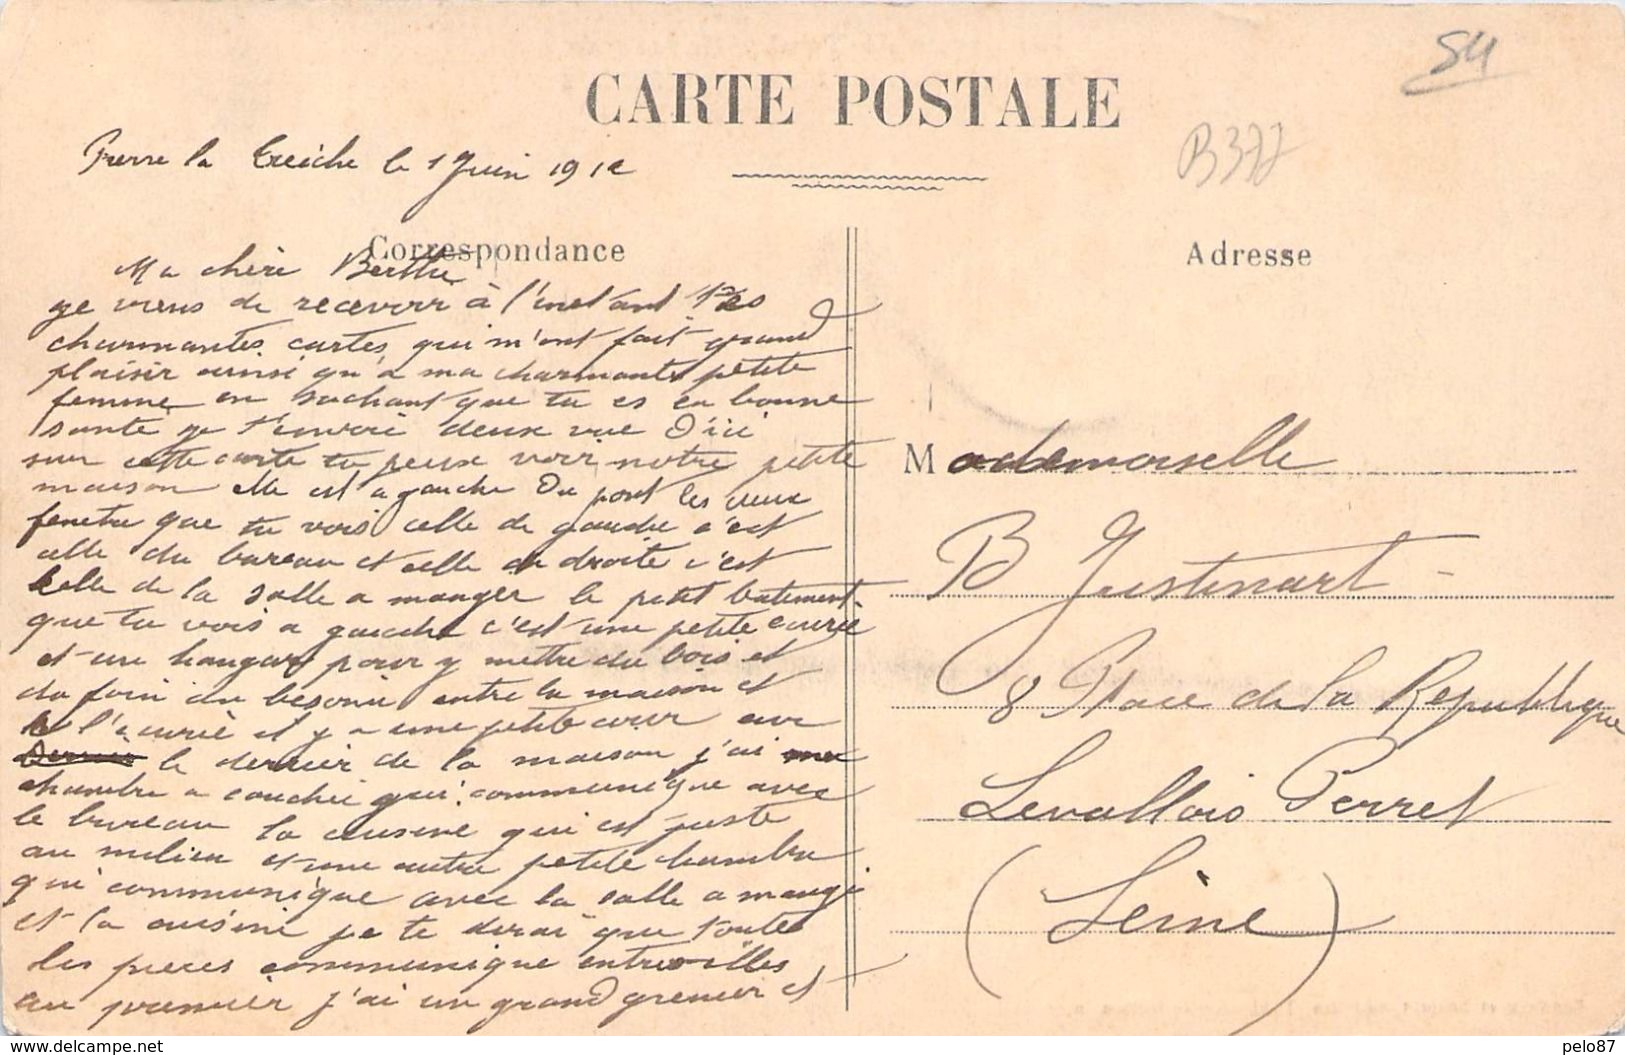 54
CARTE POSTALE
B377
Pierre la Treiche le 1 Juin 1912
Correspondance
Adresse
Ma chère Berthe
ge viens de recevoir à l'instant tes
charmantes cartes qui m'ont fait grand
plaisir ainsi qu'a ma charmante petite
femme en sachant que tu es en bonne
santé ge t'envoie deux vue d'ici
sur cette carte tu peux voir notre petite
maison elle est a gauche du pont les deux
fenetre que tu vois celle de gauche c'est
celle du bureau et celle de droite c'est
celle de la salle a manger le petit batiment
que tu vois a gauche c'est une petite écurie
et un hangar pour y mettre du bois et
du foin au besoin entre la maison et
l'écurie il y a une petite cour sur
le derrier de la maison j'ai une
chambre a couchée qui communique avec
le bureau la cuisine qui est juste
au milieu et une autre petite chambre
qui communique avec la salle a mangé
et la cuisine je te dirai que toute
les pieces communique entre elles
au premier j'ai un grand grenier et
Mademoiselle
B Justinart
8 Place de la République
Levallois Perret
(Seine)
pelo87